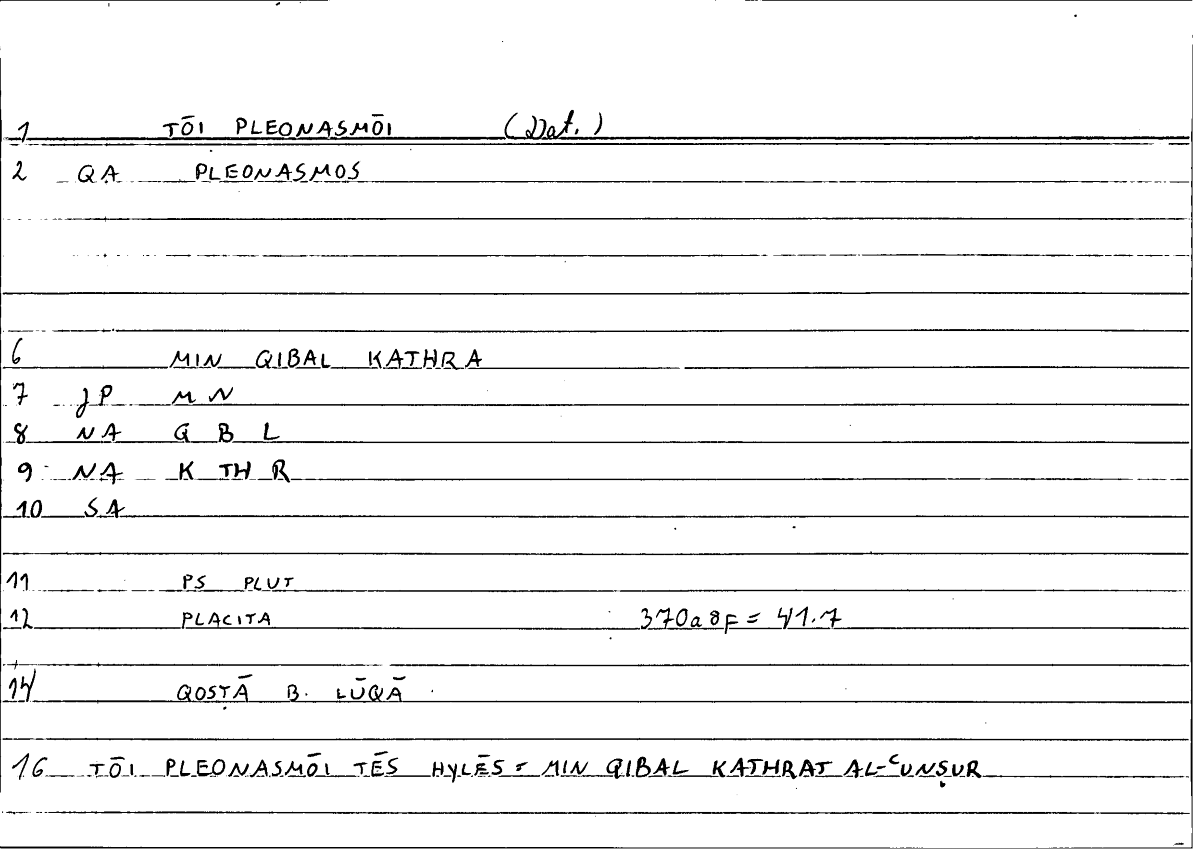 1 TŌI PLEONASMŌI (Dat.)
2 QA PLEONASMOS
6 MIN QIBAL KATHRA
7 JP M N
8 NA Q B L
9 NA K TH R
10 SA
11 PS PLUT
12 PLACITA 370a8F = 41.7
14 QOSṬĀ B. LŪQĀ
16 TŌI PLEONASMŌI TĒS HYLĒS = MIN QIBAL KATHRAT AL-ʿUNṢUR